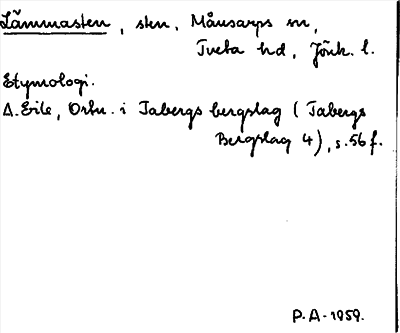 Lämmasten, sten, Månsarps sn,
Tveta hd, Jönk. l.
Etymologi.
A. Erile, Ortn. i Tabergs bergslag (Tabergs
Bergslag 4), s. 56 f.
P.A - 1959.